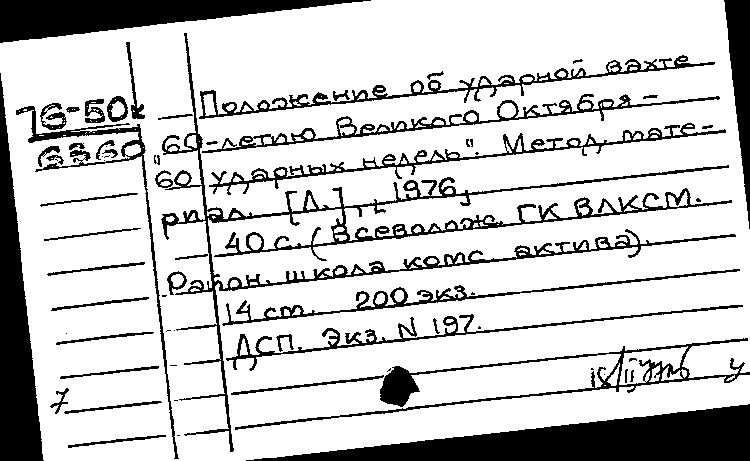 76-50к
6360
Положение об ударной вахте
"60-летию Великого Октября –
60 ударных недель". Метод. мате-
риал. [Л.], 1976,
40 с. (Всеволож. ГК ВЛКСМ.
Район. школа комс. актива).
14 ст. 200 экз.
ДСП. Экз. N 197.
7
у